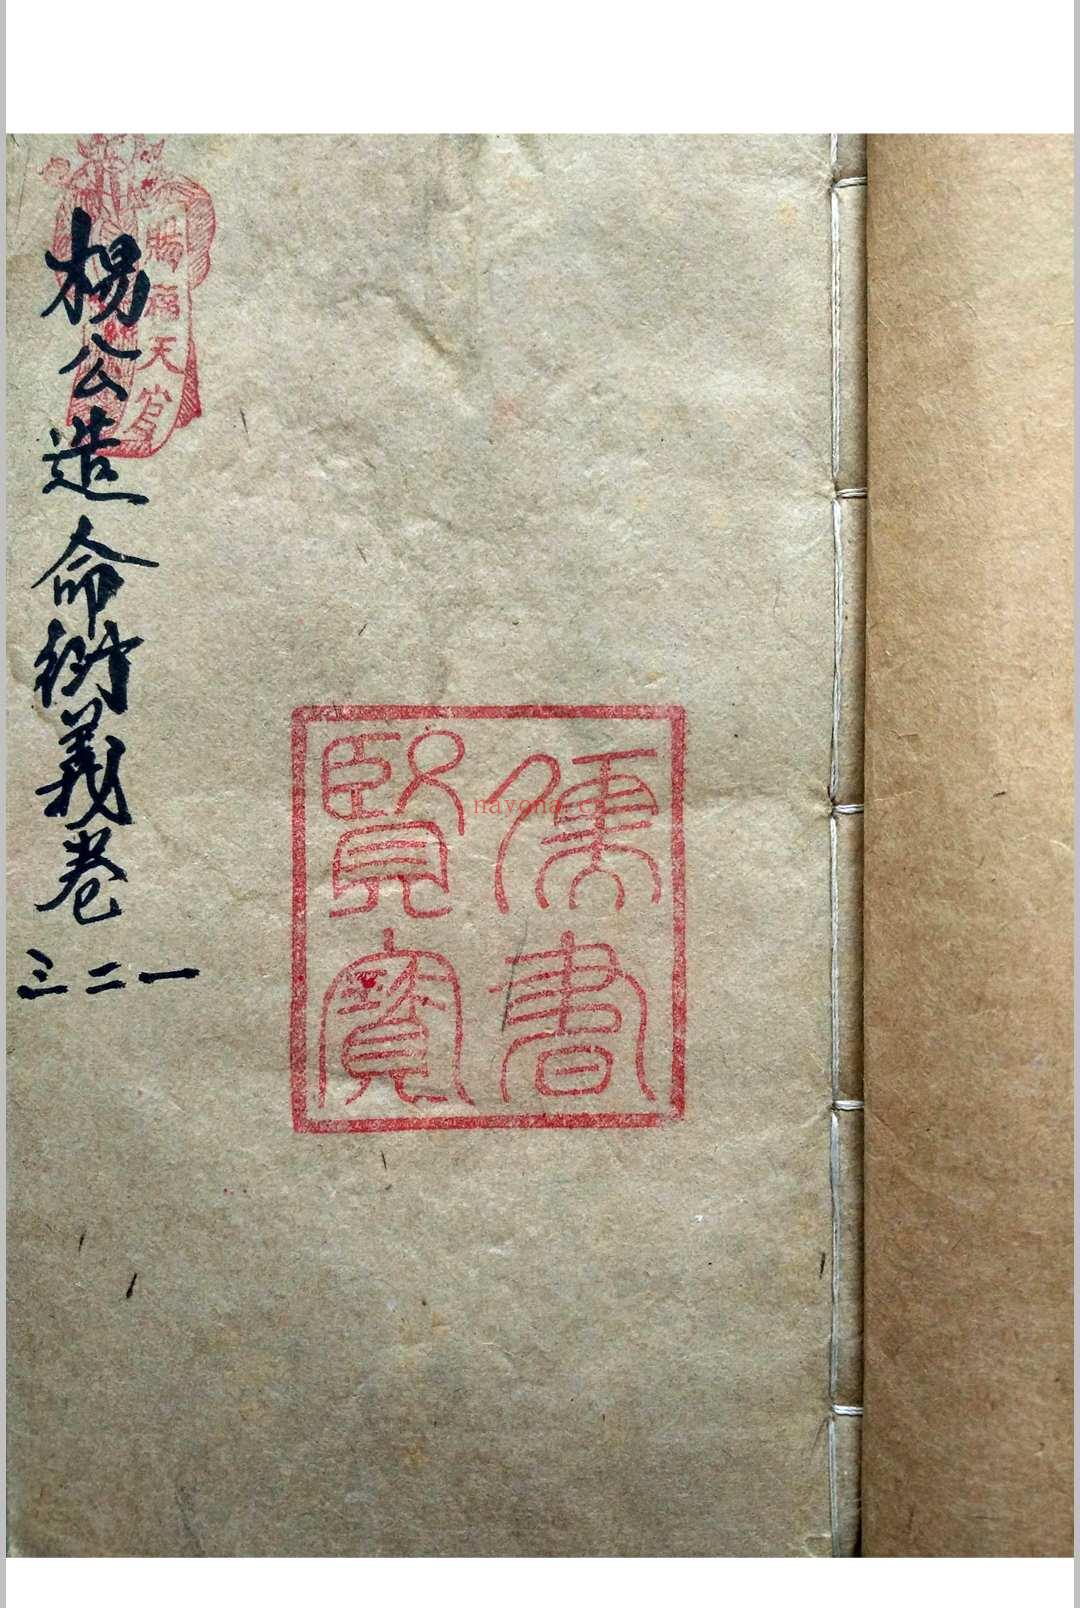 楊公造命衍義卷
一二三
賜福天官
儒書
賢寶
navona.cn